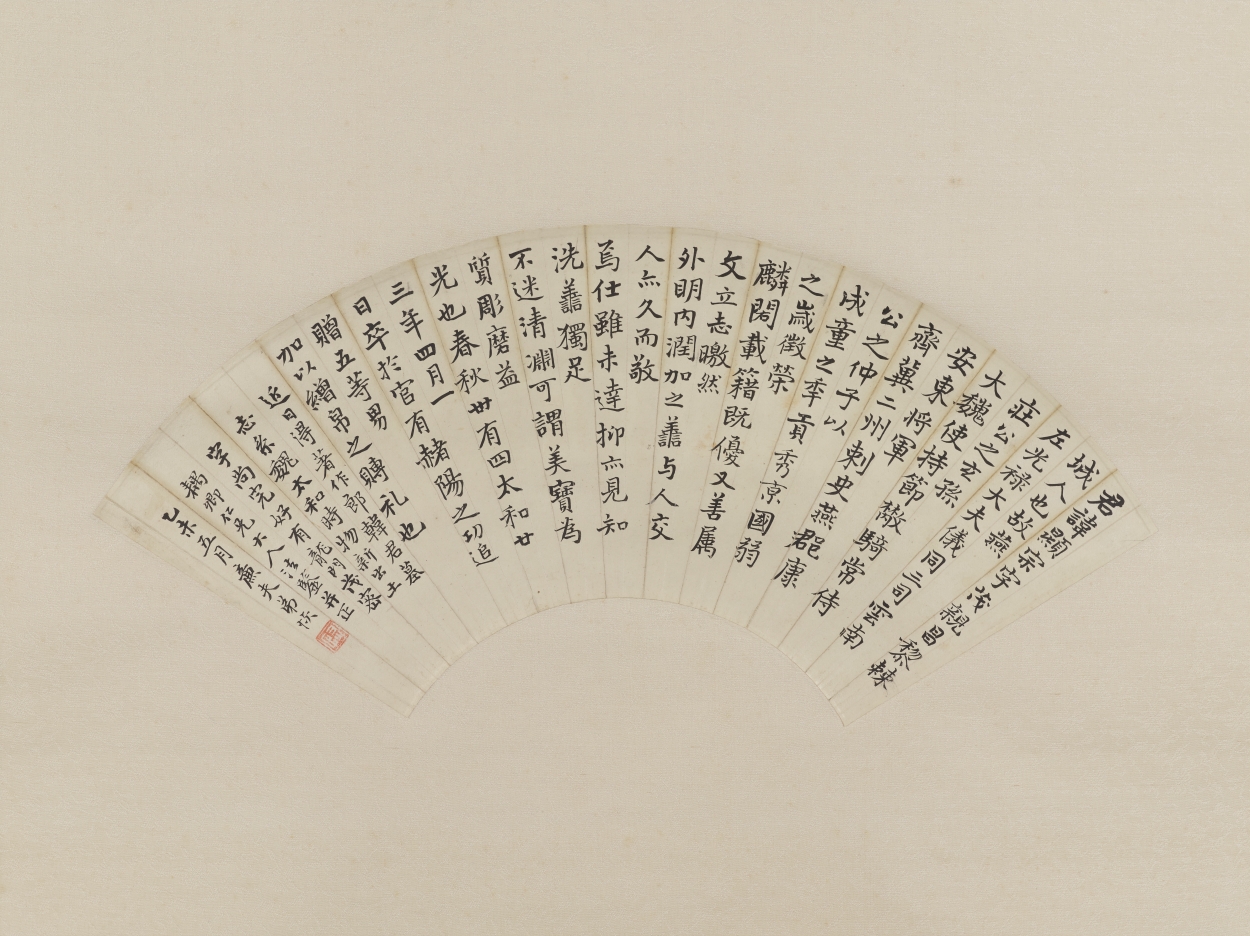 君諱顯宗字茂親昌黎棘
城人也故燕
左光祿大夫儀同三司雲南
莊公之玄孫
大魏使持節散騎常侍
安東將軍
齊冀二州刺史燕郡康
公之仲子以
成童之年貢秀京國弱
之歲徵榮
麟閣載籍既優又善属
文立志皦然
外明内潤加之善与人交
人亦久而敬
焉仕雖未達抑亦見知
洗善獨足
不迷清淵可謂美寶為
質彫磨益
光也春秋卅有四太和廿
三年四月一
日卒於官有赭陽之功追
贈五等男
加以繒帛之賻礼也
近日得著作郎韓君墓
志系魏太和時物新出土
字尚完好有龍門茂密
耦卿仁兄大人法鑒并正
乙未五月廉夫弟恢